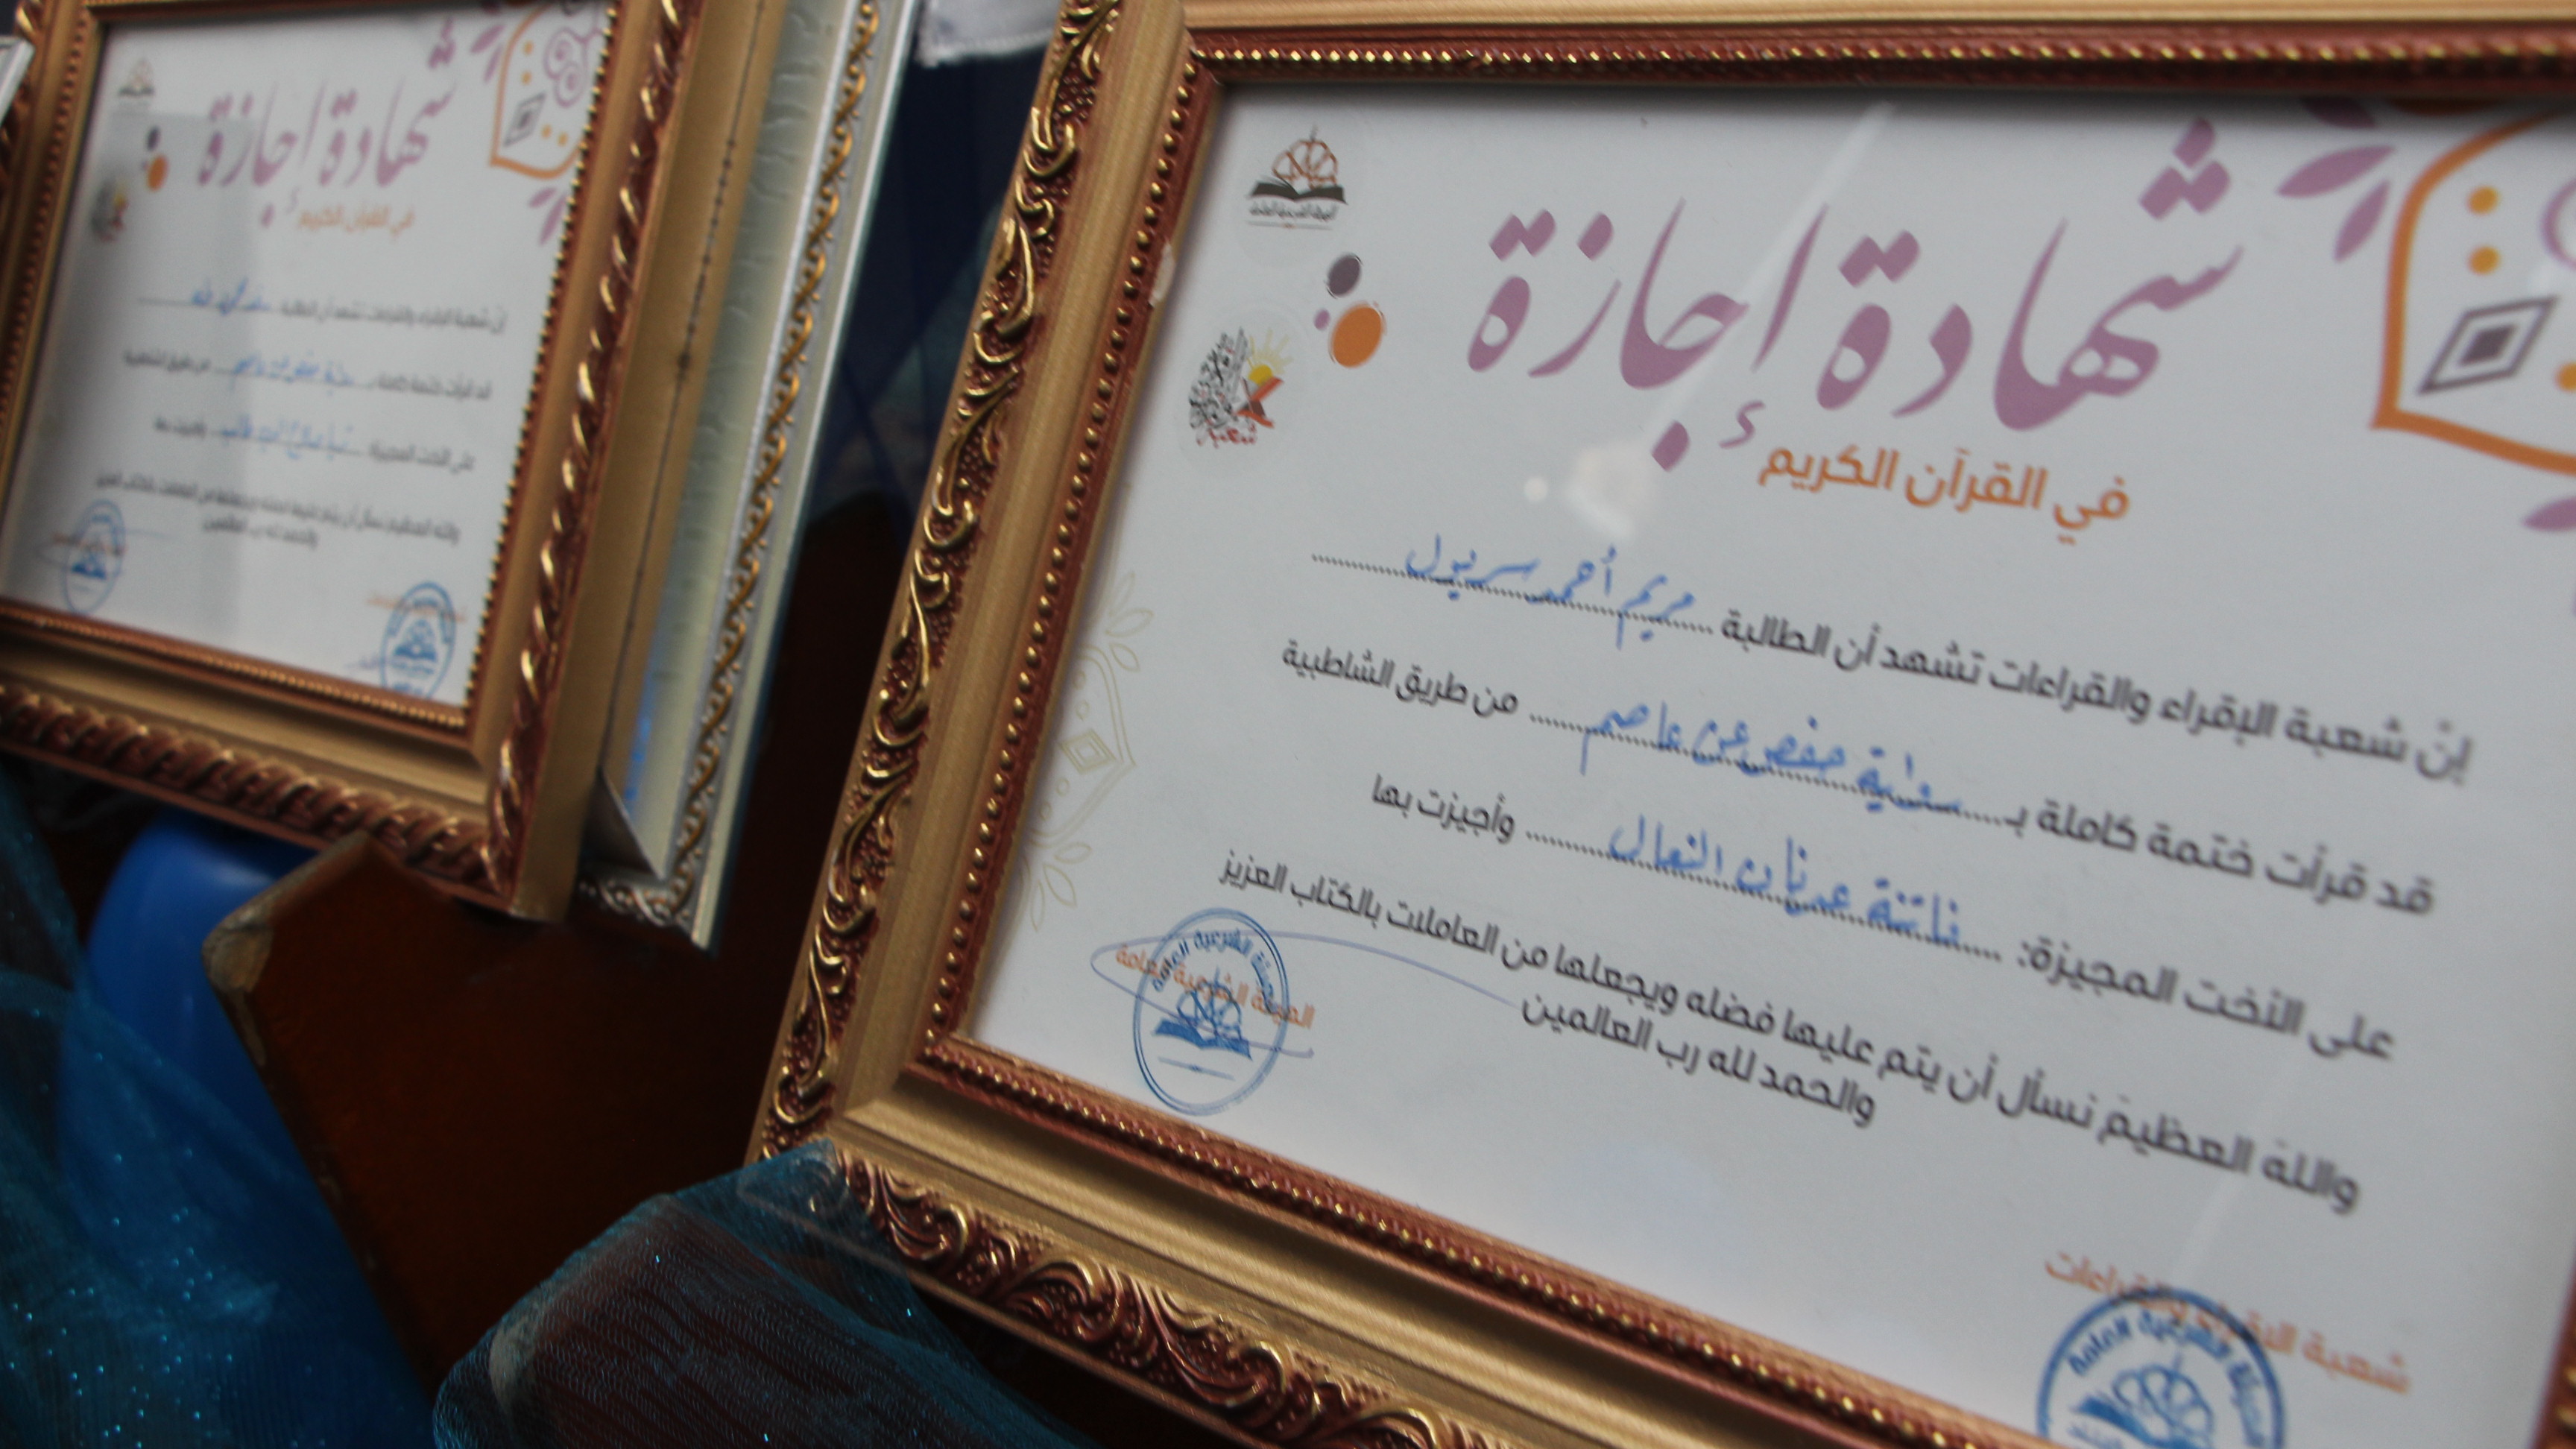 شهادة إجازة
في القرآن الكريم
إنّ شعبة الإقراء والقراءات تشهد أن الطالبة مريم أحمد سريول
قد قرأت ختمة كاملة بـ رواية حفص عن عاصم من طريق الشاطبية
على الأخت المجيزة: فاتنة عدنان النعال وأجيزت بها
واللهَ العظيمَ نسأل أن يتم عليها فضله ويجعلها من العاملات بالكتاب العزيز
والحمد لله رب العالمين
الهيئة الشرعية العامة
شعبة الإقراء والقراءات
الهيئة الشرعية العامة
شهادة إجازة
في القرآن الكريم
إنّ شعبة الإقراء والقراءات تشهد أن الطالبة
قد قرأت ختمة كاملة بـ رواية حفص عن عاصم من طريق الشاطبية
على الأخت المجيزة وأجيزت بها
واللهَ العظيمَ نسأل أن يتم عليها فضله ويجعلها من العاملات بالكتاب العزيز
والحمد لله رب العالمين